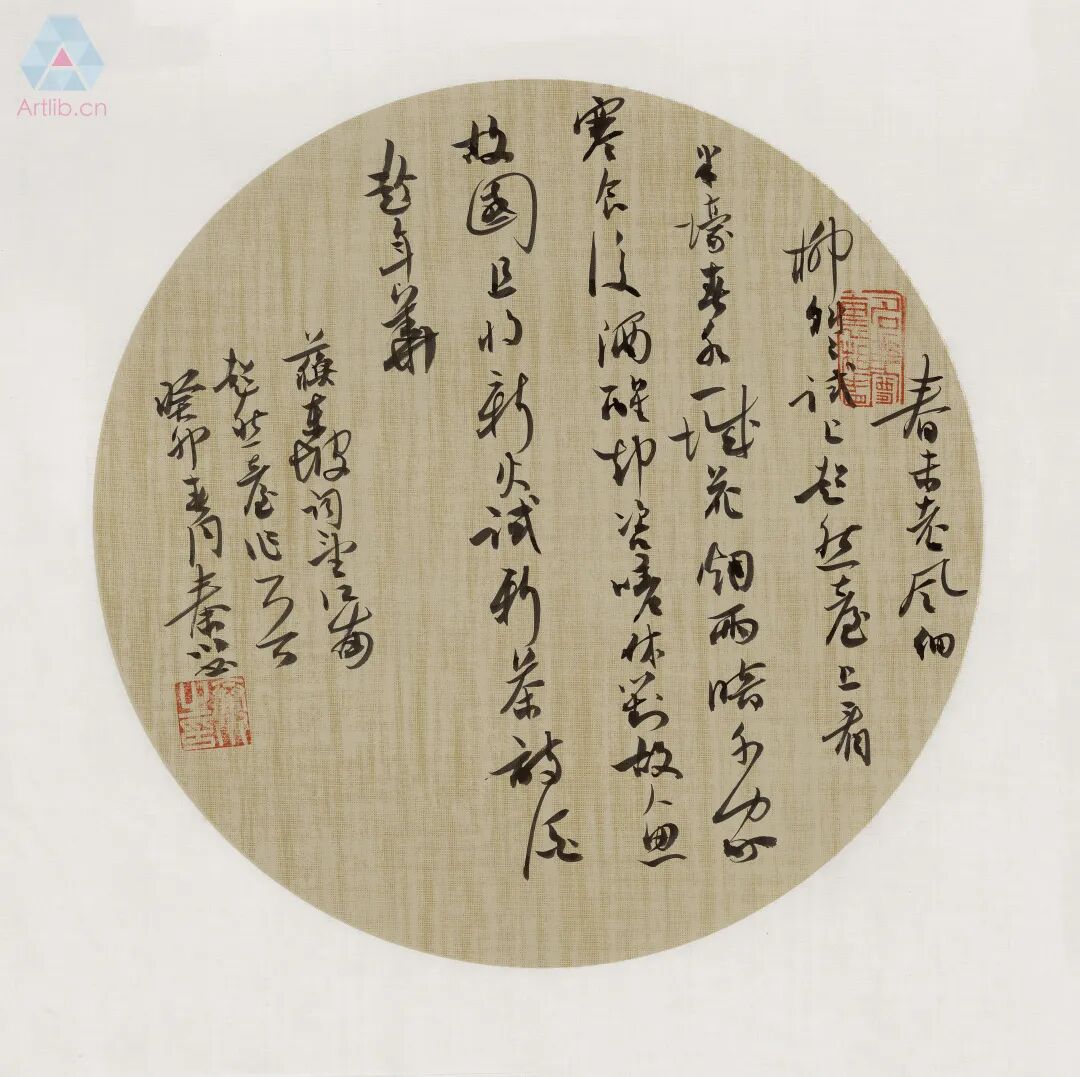 Artlib.cn
春未老风细
柳斜々試上超然臺上看
半壕春水一城花烟雨暗千家
寒食後酒醒却咨嗟休對故人思
故國且将新火試新茶詩酒
趁年華
蘇東坡詞望江南
超然臺作
癸卯春月秦